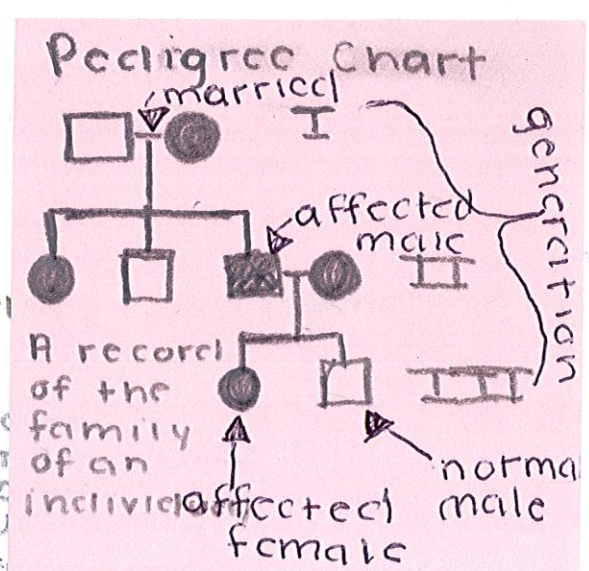 Pedigree Chart
married
I
generation
affected
male
II
A record
of the
family
of an
III
affected
female
norma
male